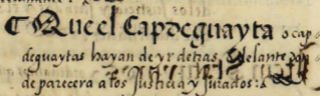 Que el Capdeguayta o cap
deguaytas hayan de yr detras delante
de parecera a los Justicia y Jurados :